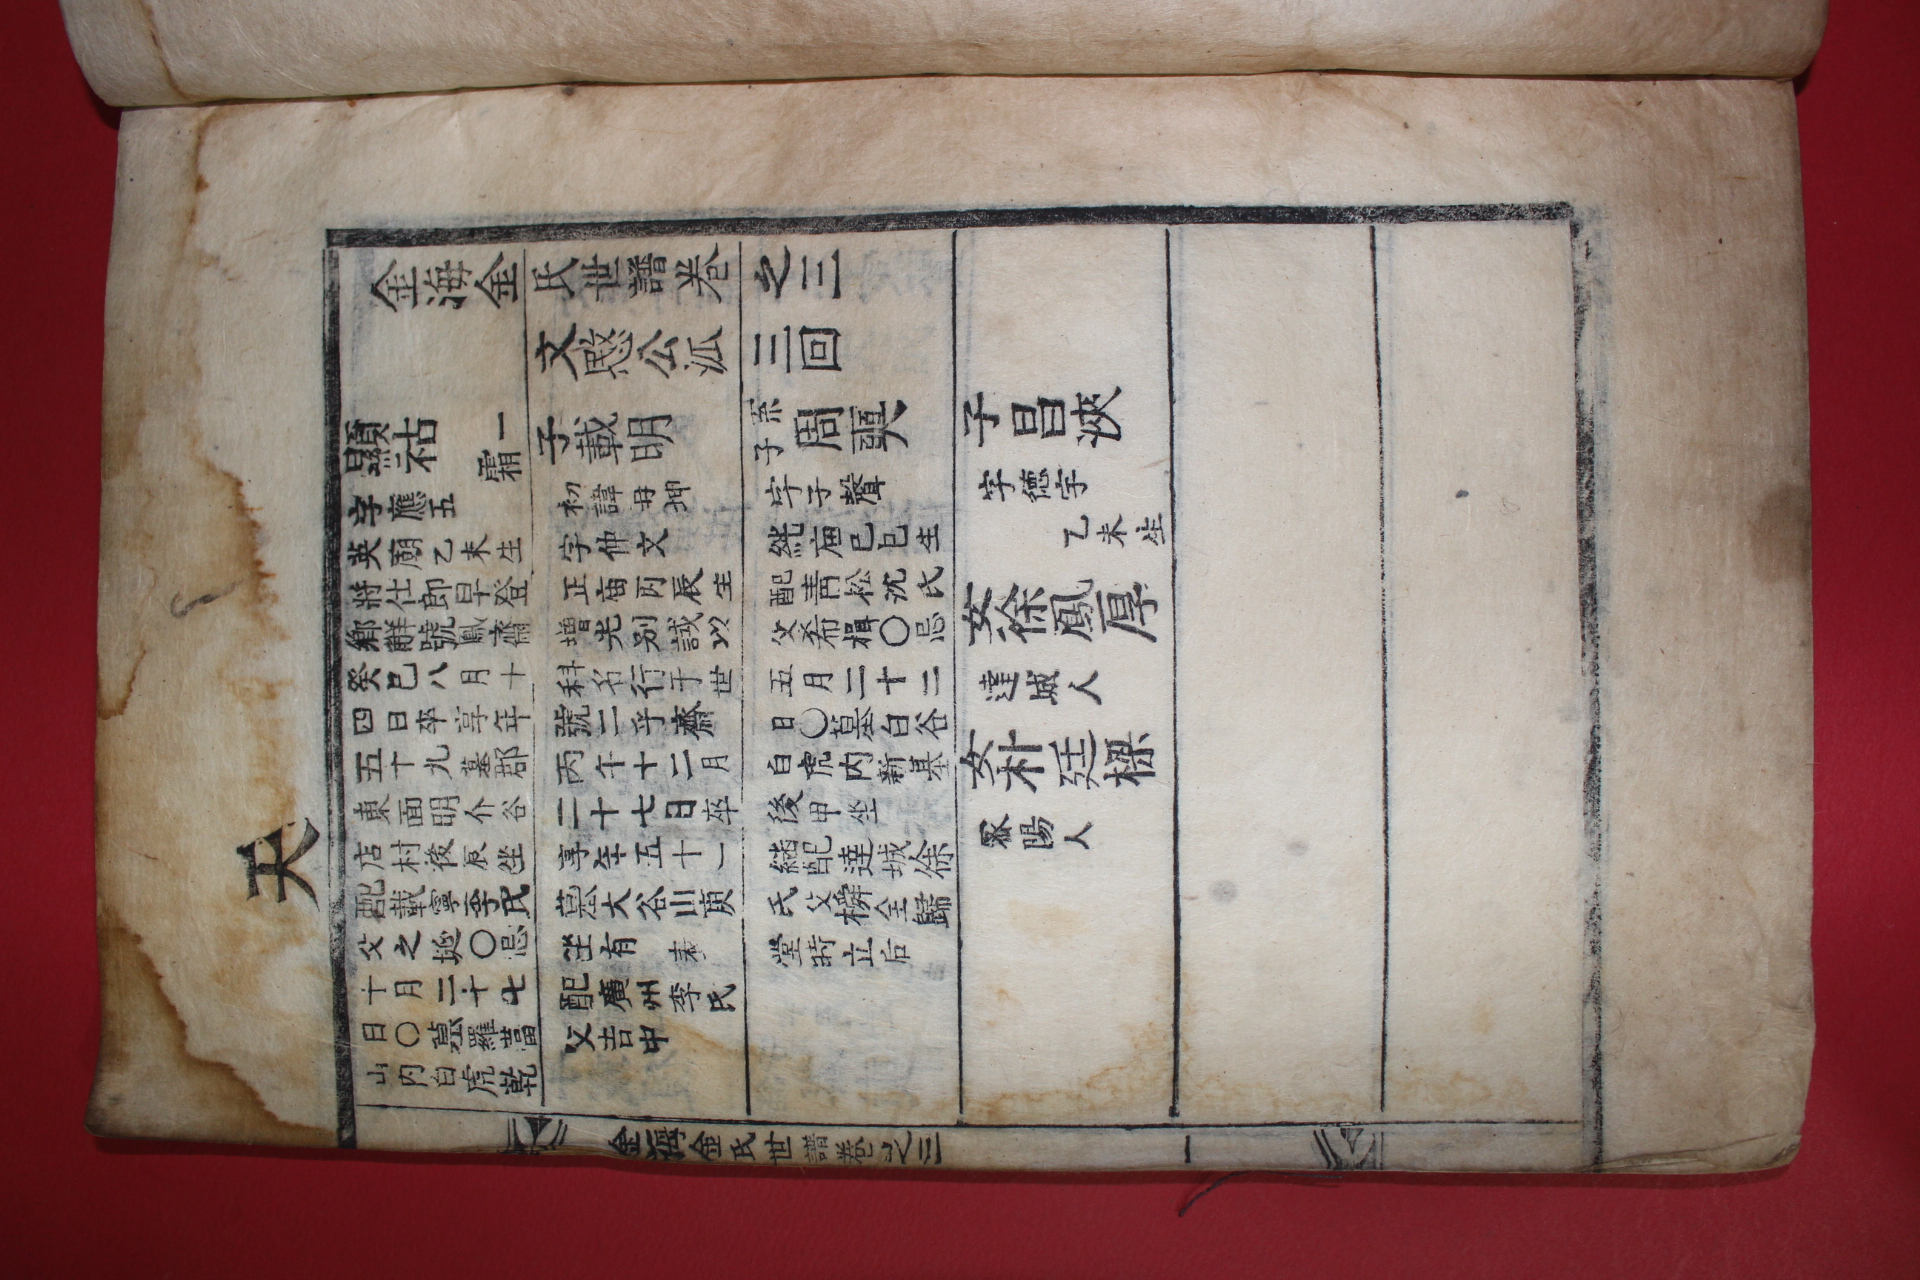 天
金海金氏世譜卷之三
文愍公派 三回
顯祐 霜一
字應五
英廟乙未生
將仕郎早登
鄕解號鳳齋
癸巳八月十
四日卒享年
五十九墓郡
東面明介谷
店村後辰坐
配載寧李氏
父之埏○忌
十月二十七
日○墓羅畓
山内白虎乾
子載明
初諱冉坤
字仲文
正庙丙辰生
增光别誠以
科名行于世
號二乎齋
丙午十二月
二十七日卒
享年五十一
墓大谷山庚
坐有表
配廣州李氏
父吉中
系子周奭
字子聲
純庙己巳生
配靑松沈氏
父希楫○忌
五月二十二
日○墓白谷
白虎内新基
後甲坐
繼配達城徐
氏父橓全歸
堂時立后
子昌浹
字德宇
乙未生
女徐鳳厚
達城人
女朴廷樑
密陽人
金海金氏世譜卷之三 一